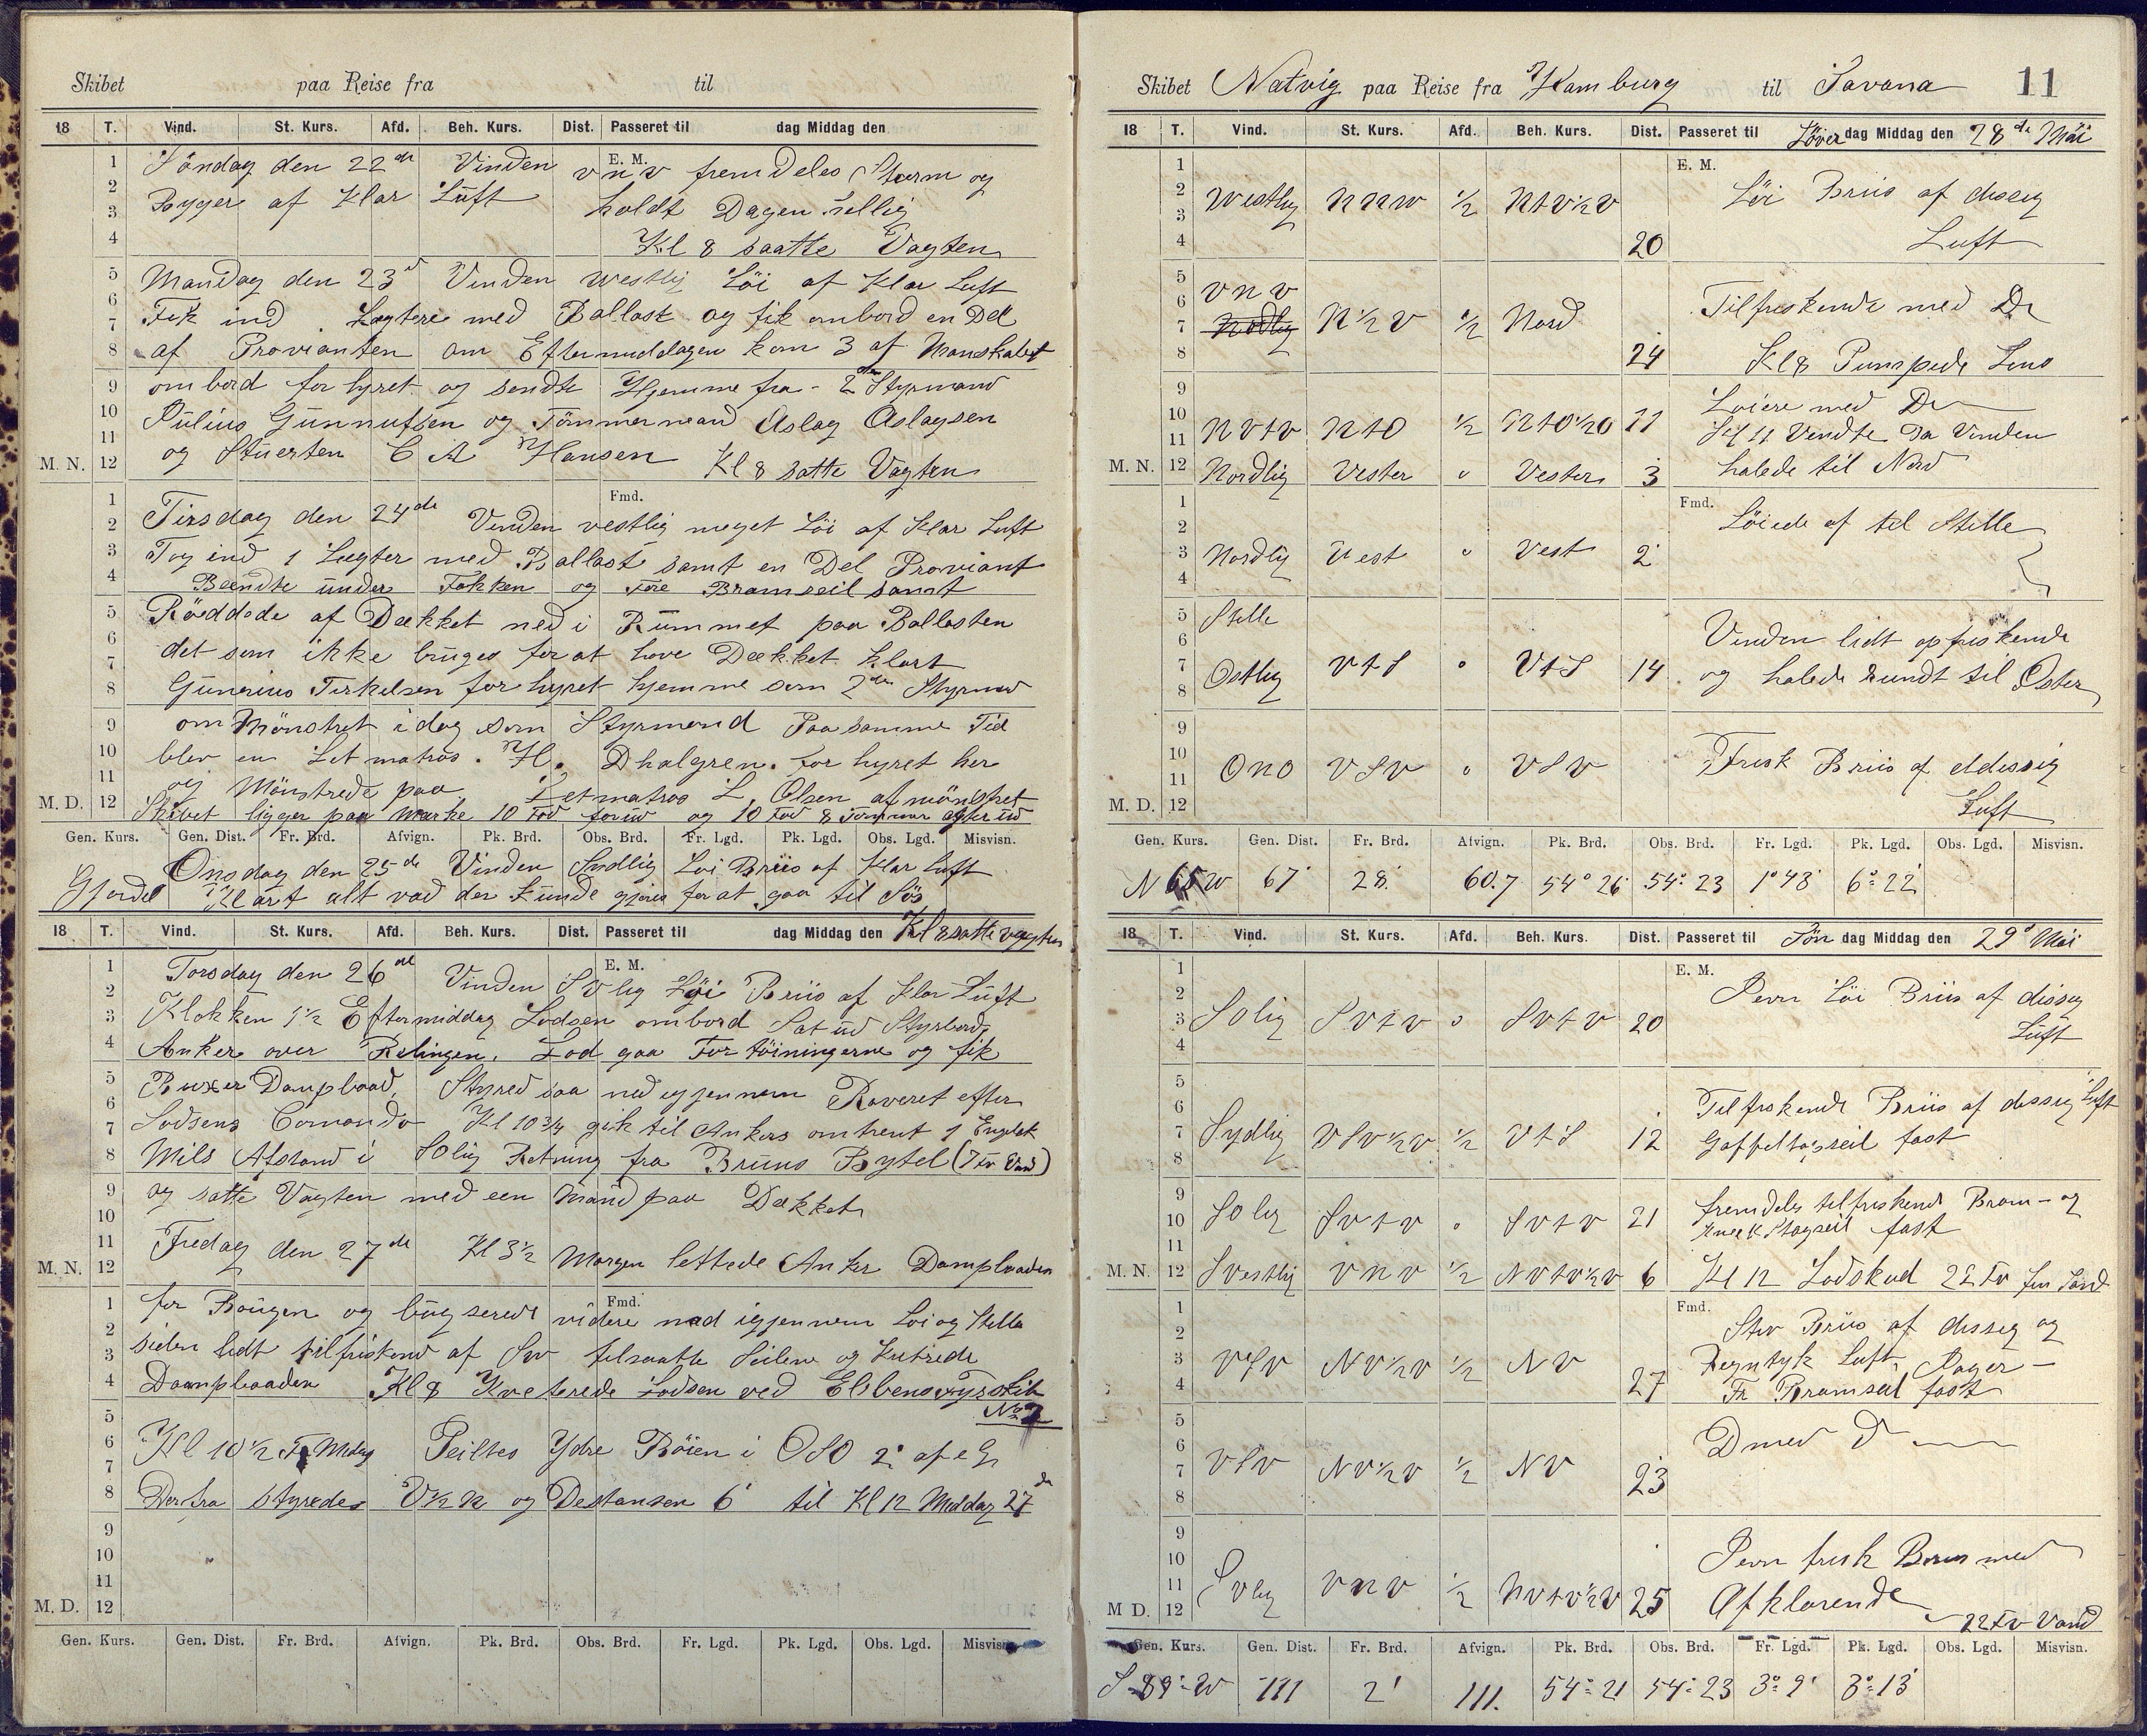 Skibet paa Reise fra til
18 T. Vind. St. Kurs. Afd. Beh. Kurs. Dist. Passeret til dag Middag den
E. M.
1 Söndag den 22de Vinden v n v fremdeles Storm og
2 Byger af Klar Luft holdt Dagen hellig
3
4 Kl 8 saatte Vagten
5 Mandag den 23d Vinden westlig Löi af Klar Luft
6 Fik ind Lægtere med Ballast og fik ombord en Del
7
8 af Provianten om Eftermiddagen kom 3 af Manskabet
9 ombord forhyret og sendte Hjemme fra - 2den Styrmand
10 Julius Gunnufsen og Tömmermand Aslag Aslagsen
11
M. N. 12 og Stuerten C A Hansen Kl 8 satte Vagten
Fmd.
1 Tirsdag den 24de Vinden vestlig meget Löi af Klar Luft
2
3 Tog ind 1 Lægter med Ballast samt en Del Proviant
4 Beendte under Fokken og Fore Bramseil samt
5 Röddede af Dækket ned i Rummet paa Ballasten
6 det som ikke bruges for at have Dækket klart
7
8 Gunerius Terkelsen forhyret hjemme som 2den Styrmd
9 om Mönstret i dag som Styrmand Paa samme Tid
10 blev en Letmatros. H. Dhalgren. for hyret her
11 og Mönstrede paa Letmatros L. Olsen afmönstret
M. D. 12 Skibet ligger paa Mærke 10 Fod forud og 10 Fod 8 Tommer agterud
Gen. Kurs. Gen. Dist. Fr. Brd. Afvign. Pk. Brd. Obs. Brd. Fr. Lgd. Pk. Lgd. Obs. Lgd. Misvisn.
Onsdag den 25de Vinden Sydlig Löi Briis af Klar Luft
Gjordet Klart alt vad der kunde gjöres for at gaa til Sös
18 T. Vind. St. Kurs. Afd. Beh. Kurs. Dist. Passeret til dag Middag den Kl 8 satte vagten
E. M.
1 Torsdag den 26de Vinden SVlig Löi Briis af Klar Luft
2
3 Klokken 1½ Eftermiddag Lodsen ombord Sat ud Styrbords
4 Anker over Relingen. Lod gaa Fortöiningerne og fik
5 Buxer Dampbaad, Styred saa ned igjennem Raveret efter
6
7 Lodsens Comando Kl 10¾ gik til Ankers omtrent 1 Engelsk
8 Mils Afstand i SOlig Retning fra Bruns Bytel (7 Fv Vand)
9 og satte Vagten med een Mand paa Dækket
10
11
M. N. 12 Fredag den 27de Kl 3½ Morgen lettede Anker Dampbaaden
Fmd.
1 for Bougen og bugserede videre ned igjennem Löi og Stille
2
3 siden lidt tilfriskend af SW tilsaatte Seilene og kutrede
4 Dampbaaden Kl 8 Kveterede Lodsen ved Elbens Fyrskib
5 No 2
6 Kl 10½ F Mdag Peiltes Ydre Böien i OSO 2' af og
7
8 Derfra styredes V½N og Destansen 6' til Kl 12 Middag 27de
9
10
11
M. D. 12
Gen. Kurs. Gen. Dist. Fr. Brd. Afvign. Pk. Brd. Obs. Brd. Fr. Lgd. Pk. Lgd. Obs. Lgd. Misvisn.
Skibet Natvig paa Reise fra Hamburg til Savana 11
18 T. Vind. St. Kurs. Afd. Beh. Kurs. Dist. Passeret til Löverdag Middag den 28de Mai
E. M.
1
2 Westlig NNW ½ NtV½V Löi Briis af dissig
3
4 20 Luft
5 VNV
6 Tilfriskende med Do
7 Nordlig N½V ½ Nord
8 24 Kl 8 Pumpede Lens
9 Loiere med Do
10 NVtV NtO ½ NtO½O 11 Kl 11 Vendte da Vinden
11
M. N. 12 Nordlig Vester o Vester 3 halede til Nord
Fmd.
1 Löiede af til Stille
2
3 Nordlig Vest o Vest 2
4
5 Stille
6 Vinden lidt opfriskende
7 Ostlig VtS o VtS 14 og halede Rundt til Öster
8
9
10 ONO VSV o VSV Frisk Briis af dissig
11
M. D. 12 Luft
Gen. Kurs. Gen. Dist. Fr. Brd. Afvign. Pk. Brd. Obs. Brd. Fr. Lgd. Pk. Lgd. Obs. Lgd. Misvisn.
N 65 W 67' 28' 60.7 54° 26 54° 23 1° 43' 6° 22'
18 T. Vind. St. Kurs. Afd. Beh. Kurs. Dist. Passeret til Söndag Middag den 29d Mai
E. M.
1
2 Jevn Löi Briis af dissig
3 SOlig SVtV o SVtV 20
4 Luft
5
6 Tilfriskende Briis af dissig Luft
7 Sydlig VSV½V ½ VtS 12 Gaffeltopseil fast
8
9 fremdeles tilfriskende Bram- og
10 SOlig SVtV o SVtV 21 Stagseil fast
11
M. N. 12 Svestlig VNV ½ NVtV½V 6 Kl 12 Lodskud 22 Fv fin Sand
Fmd.
1 Stiv Briis af dissig og
2
3 VSV NV½V ½ NV Regntyk Luft,
4 27 Fr Bramseil fast
5
6 Do med Do
7 VSV NV½V ½ NV
8 23
9
10 Jevn frisk Briis med
11 SVlig VNV ½ NVtV½V 25 Afklarende
M D. 12 22 Fv Vand
Gen. Kurs. Gen. Dist. Fr. Brd. Afvign. Pk. Brd. Obs. Brd. Fr. Lgd. Pk. Lgd. Obs. Lgd. Misvisn.
S 89° W 111 2' 111. 54° 21 54° 23 3° 9' 3° 13'